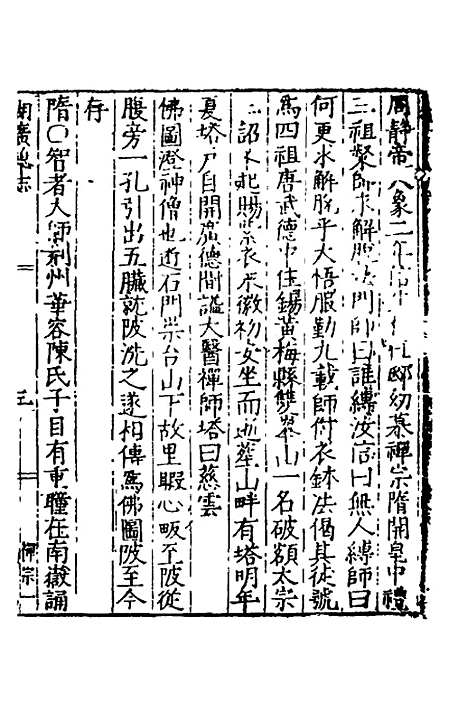 周靜帝大象二年 邸幼慕禪宗隋開皇中禮
三祖璨師求解脫法門師曰誰縛汝 曰無人縛師曰
何更求解脫乎大悟服勤九載師付衣鉢法偈其徒號
為四祖唐武德中住錫黃梅縣雙峯山一名破額太宗
三詔不起賜紫衣永徽初安坐而逝葬山畔有塔明年
夏塔戶自開廣德間謚大醫禪師塔曰慈雲
佛圖澄神僧也近石門崇台山下故里暇心 至陂從
腹旁一孔引出五臟就陂洗之遂相傳為佛圖陂至今
存
隋〇智者大師荊州華容陳氏子目有重瞳在南嶽誦
湖廣總志
三
釋宗一